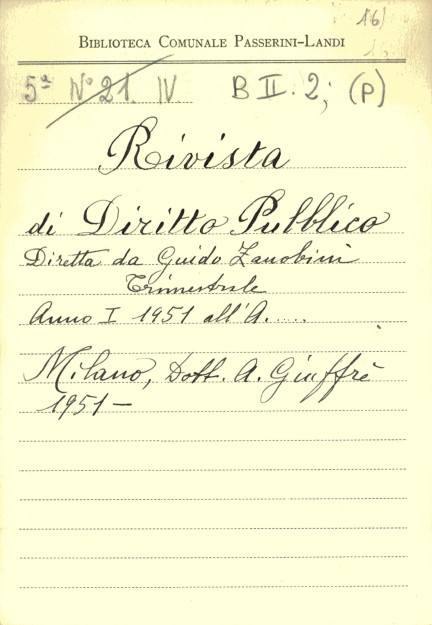 16)
BIBLIOTECA COMUNALE PASSERINI-LANDI
5ª N° 21. IV B II. 2; (P)
Rivista
di Diritto Pubblico
Diretta da Guido Zanobini
Trimestrale
Anno I 1951 all'A.....
Milano, Dott. A. Giuffrè
1951-